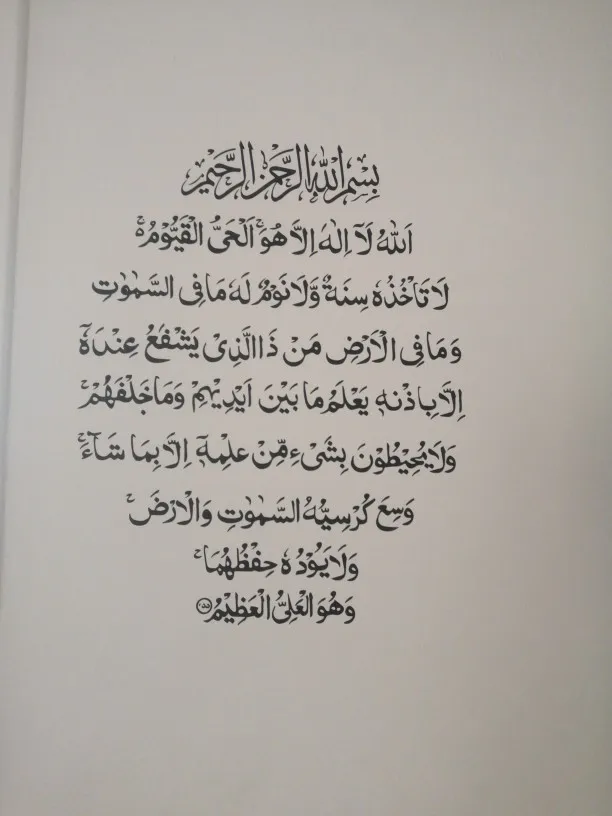 بِسْمِ اللّٰهِ الرَّحْمٰنِ الرَّحِيْمِ
اَللّٰهُ لَآ اِلٰهَ اِلَّا هُوَ ۚ اَلْحَيُّ الْقَيُّوْمُ ۚ
لَا تَاْخُذُهٗ سِنَةٌ وَّلَا نَوْمٌ لَهٗ مَا فِى السَّمٰوٰتِ
وَمَا فِى الْاَرْضِ مَنْ ذَا الَّذِىْ يَشْفَعُ عِنْدَهٗٓ
اِلَّا بِاِذْنِهٖ يَعْلَمُ مَا بَيْنَ اَيْدِيْهِمْ وَمَا خَلْفَهُمْ ۚ
وَلَا يُحِيْطُوْنَ بِشَىْءٍ مِّنْ عِلْمِهٖٓ اِلَّا بِمَا شَآءَ ۚ
وَسِعَ كُرْسِيُّهُ السَّمٰوٰتِ وَالْاَرْضَ ۚ
وَلَا يَـُٔوْدُهٗ حِفْظُهُمَا ۚ
وَهُوَ الْعَلِىُّ الْعَظِيْمُ ۝٢٥٥